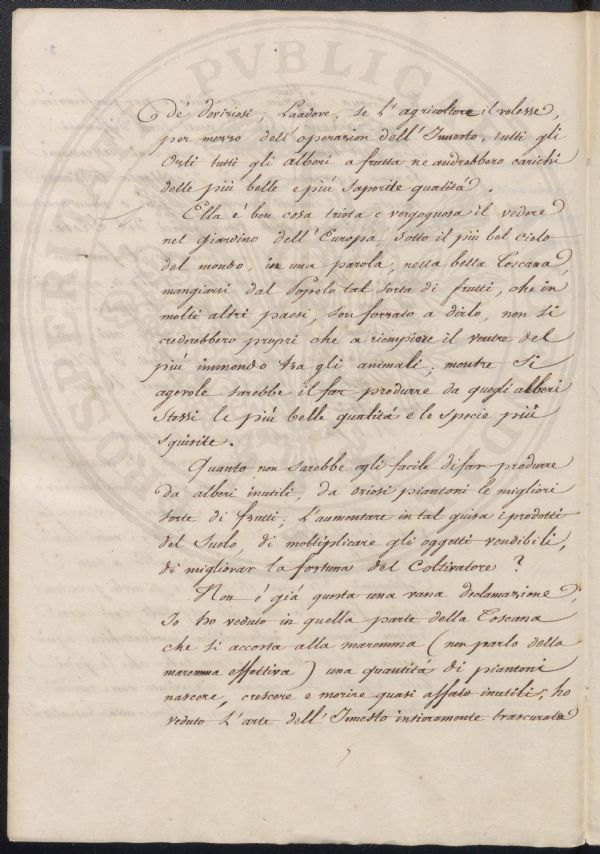 PROSPERITATI PVBLIC
de' doviziosi, Laadove, se L'agricoltore il volesse,
per mezzo dell'operazion dell'Innesto, tutti gli
Orti tutti gli alberi a frutta ne andrebbero carichi
delle più belle e più saporite qualità.
Ella é ben cosa trista e vergognosa il vedere
nel giardino dell'Europa sotto il più bel cielo
del mondo, in una parola, nella bella Toscana,
mangiarsi dal Popolo tal sorta di frutti, che in
molti altri paesi, son forzato a dirlo, non si
crederebbero propri che a riempiere il ventre del
più immondo tra gli animali; mentre si
agevole sarebbe il far produrre da quegli alberi
stessi le più belle qualità e le specie più
squisite.
Quanto non sarebbe egli facile di far produrre
da alberi inutili, da oziosi piantoni le migliori
sorte di frutti; L'aumentare in tal guisa i prodotti
del Suolo, di moltiplicare gli oggetti vendibili,
di migliorar la fortuna del Coltivatore?
Non é già questa una vana declamazione,
Io ho veduto in quella parte della Toscana
che si accosta alla maremma (non parlo della
maremma effettiva) una quantità di piantoni
nascere, crescere e morire quasi affato inutili; ho
veduto L'arte dell'Innesto intieramente trascurata